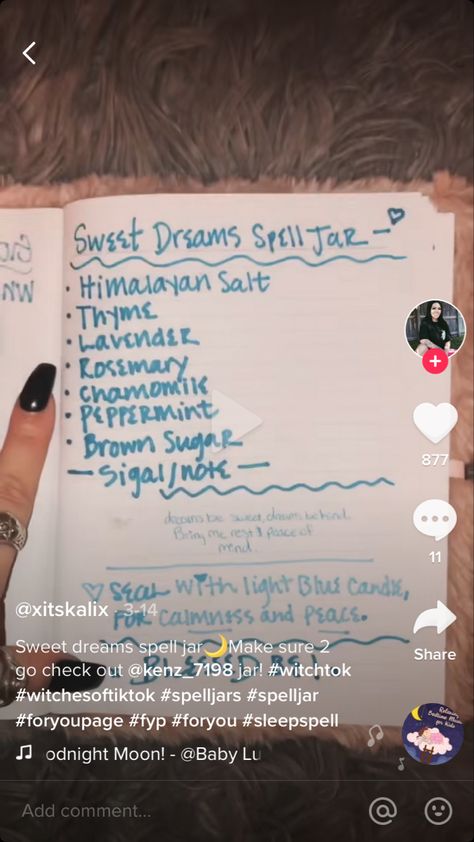 Sweet Dreams Spell Jar -
• Himalayan Salt
• Thyme
• Lavender
• Rosemary
• Chamomile
• Peppermint
• Brown Sugar
- Sigal/note -
dreams be sweet, dreams be kind.
Bring me rest & peace of
mind.
♡ Seal with light Blue Candle,
For calmness and Peace.
877
11
Share
@xitskalix · 3-14
Sweet dreams spell jar🌙Make sure 2
go check out @kenz_7198 jar! #witchtok
#witchesoftiktok #spelljars #spelljar
#foryoupage #fyp #foryou #sleepspell
odnight Moon! - @Baby Lu
Relaxing
Bedtime Music
for Kids
Add comment...